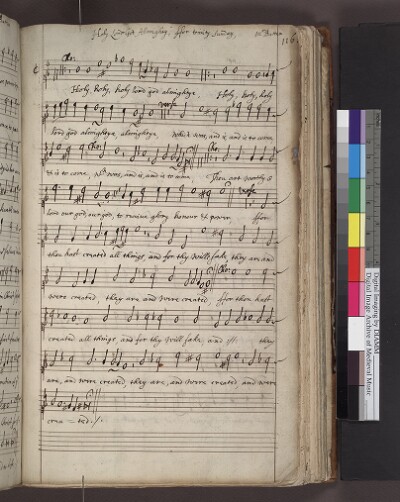 Holy Lord god Almighty: ffor trinity Sunday. Mr Batten
116
Cho:
Holy, holy, holy lord god almightye, Holy, holy, holy
verse
lord god almightye, almightye, which was, and is, and is to come
Cho:
is to come, was, and is, and is to come. Thou art worthy o
verse
lord our god, our god, to receive glory honour & power, ffor
thou hast created all things, and for thy will's sake, they are and
Cho:
were created, they are and were created, ffor thou hast
created all things, and for thy will's sake, and :||: they
are, and were created, they are, and were created and were
crea = ted.
Digital Imaging by DIAMM
Digital Image Archive of Medieval Music